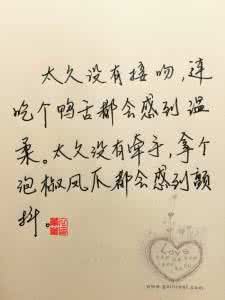 太久没有接吻,连
吃个鸭舌都会感到温
柔。太久没有牵手,拿个
泡椒凤爪都会感到颤
抖。
Love
www.gainreel.com